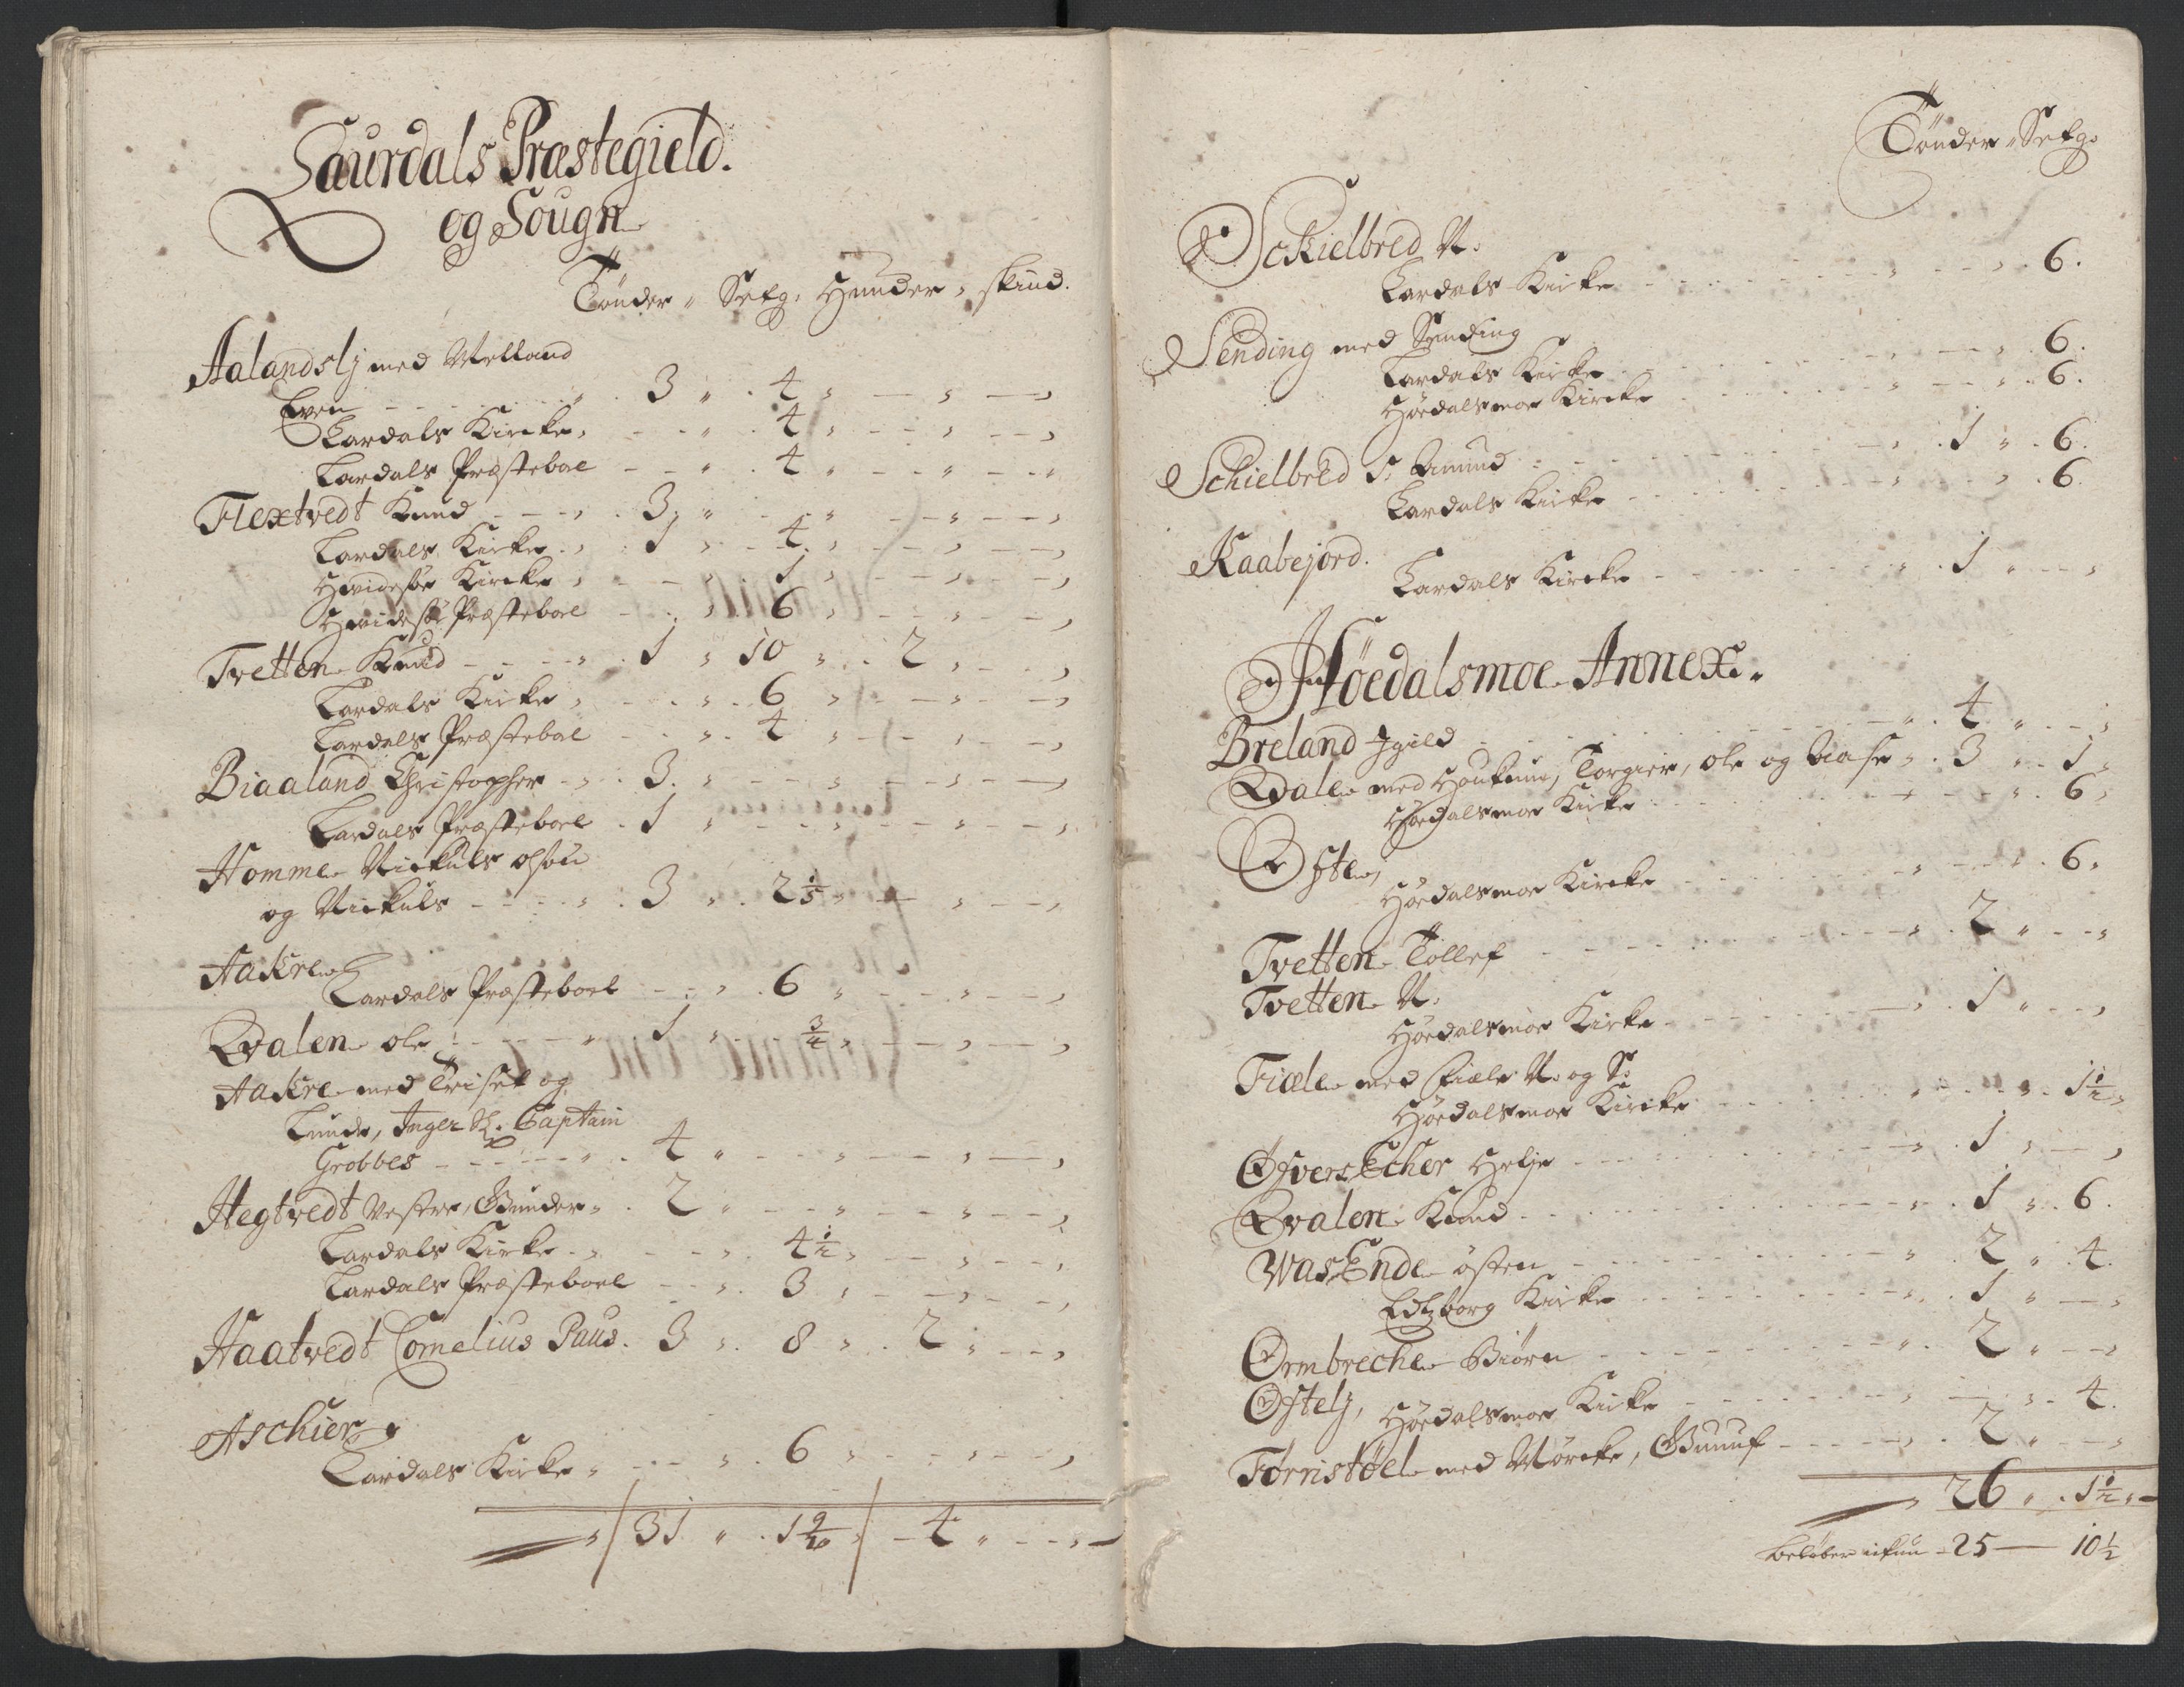 Laurdals Præstegield.
og Sougn
Tønder " Setg. Hunder, skind.
Aalandslj med Melland
Even - - - 3 " 4 " — " —
Lardals Kircke, - - " 4 " - - " - -
Lardals Præsteboe - - " 4 " - - " - -
Flextvedt Knud - - - 3 " - - " - - " - -
Lardals Kircke " 1 " 4 " - - " - -
Hvidesøe Kircke " - - " 1 " - - " - -
Hvidesøe Præsteboel - - " 6 " - - " - -
Tvetten Knud - - - " 1 " 10 " 2 " - -
Lardals Kircke " - - " 6 " - - " - -
Lardals Præstebol - - " 4 " - - " - -
Biaaland Christopher - " 3 " - - " - - " - -
Lardals Præsteboel 1 " - - " - - " - -
Homme Nickuls olsøn
og Nickuls - - - " 3 " 2 1/5 " - - " - -
Aakre
Lardals Præsteboel - - " 6 " - - " - -
Qvalen ole - - - " 1 " 3/4 " - - " - -
Aakre med Triset og
Lunde, Inger Sl. Captain
Grobbes - - - " 4 " - - " - - " - -
Hegtvedt Vestre, Gunder " 2 " - - " - - " - -
Lardals Kircke - " - - " 4 1/2 " - - " - -
Lardals Præsteboel - - " 3 " - - " - -
Haatvedt Cornelius Paus. 3 " 8 " 2 " - -
Aschier
Lardals Kircke " - - " 6 " - - " - -
" 31 " 1 9/20 " - 4 " - - " -
Tønder " Setg.
Schielbred N.
Lardals Kircke - - - " - - " 6.
Sending med Sending
Lardals Kircke - - - " - - " 6.
Høedalsmoe Kircke - - - " - - " 6.
Schielbred S. Amund - - - " 1 " 6.
Lardals Kircke - - - " - - " 6.
Kaabejord.
Lardals Kircke - - - " 1 " - -
Høedalsmoe Annex.
Breland Igild - - - " 4 " - -
Dale med Haukum, Torgier, ole og Aase " 3 " 1 "
Høedalsmoe Kircke - - - " - - " 6 "
Øfte,
Høedalsmoe Kircke - - - " - - " 6 "
Tvetten Tollef - - - " 2 " - -
Tvetten N.
Høedalsmoe Kircke - - - " 1 " - -
Fiæle med Fiæle N. og S:
Høedalsmoe Kircke - - - " - - " 1 1/2 "
ØfversEcher Helje - - - " 1 " - -
Qvalen Knud - - - " 1 " 6.
WasEnde østen - - - " 2 " 4.
Edtzborg Kircke - - - " 1 " - -
Ormbreche Biørn - - - " 2 " - -
Øftelj, Høedalsmoe Kircke - - - " - - " 4.
Førristøel med Mørcke, Gunuf - - - " 2 " - -
" 26 " 1 1/2 " -
beløber ickun - 25 — 10 1/2